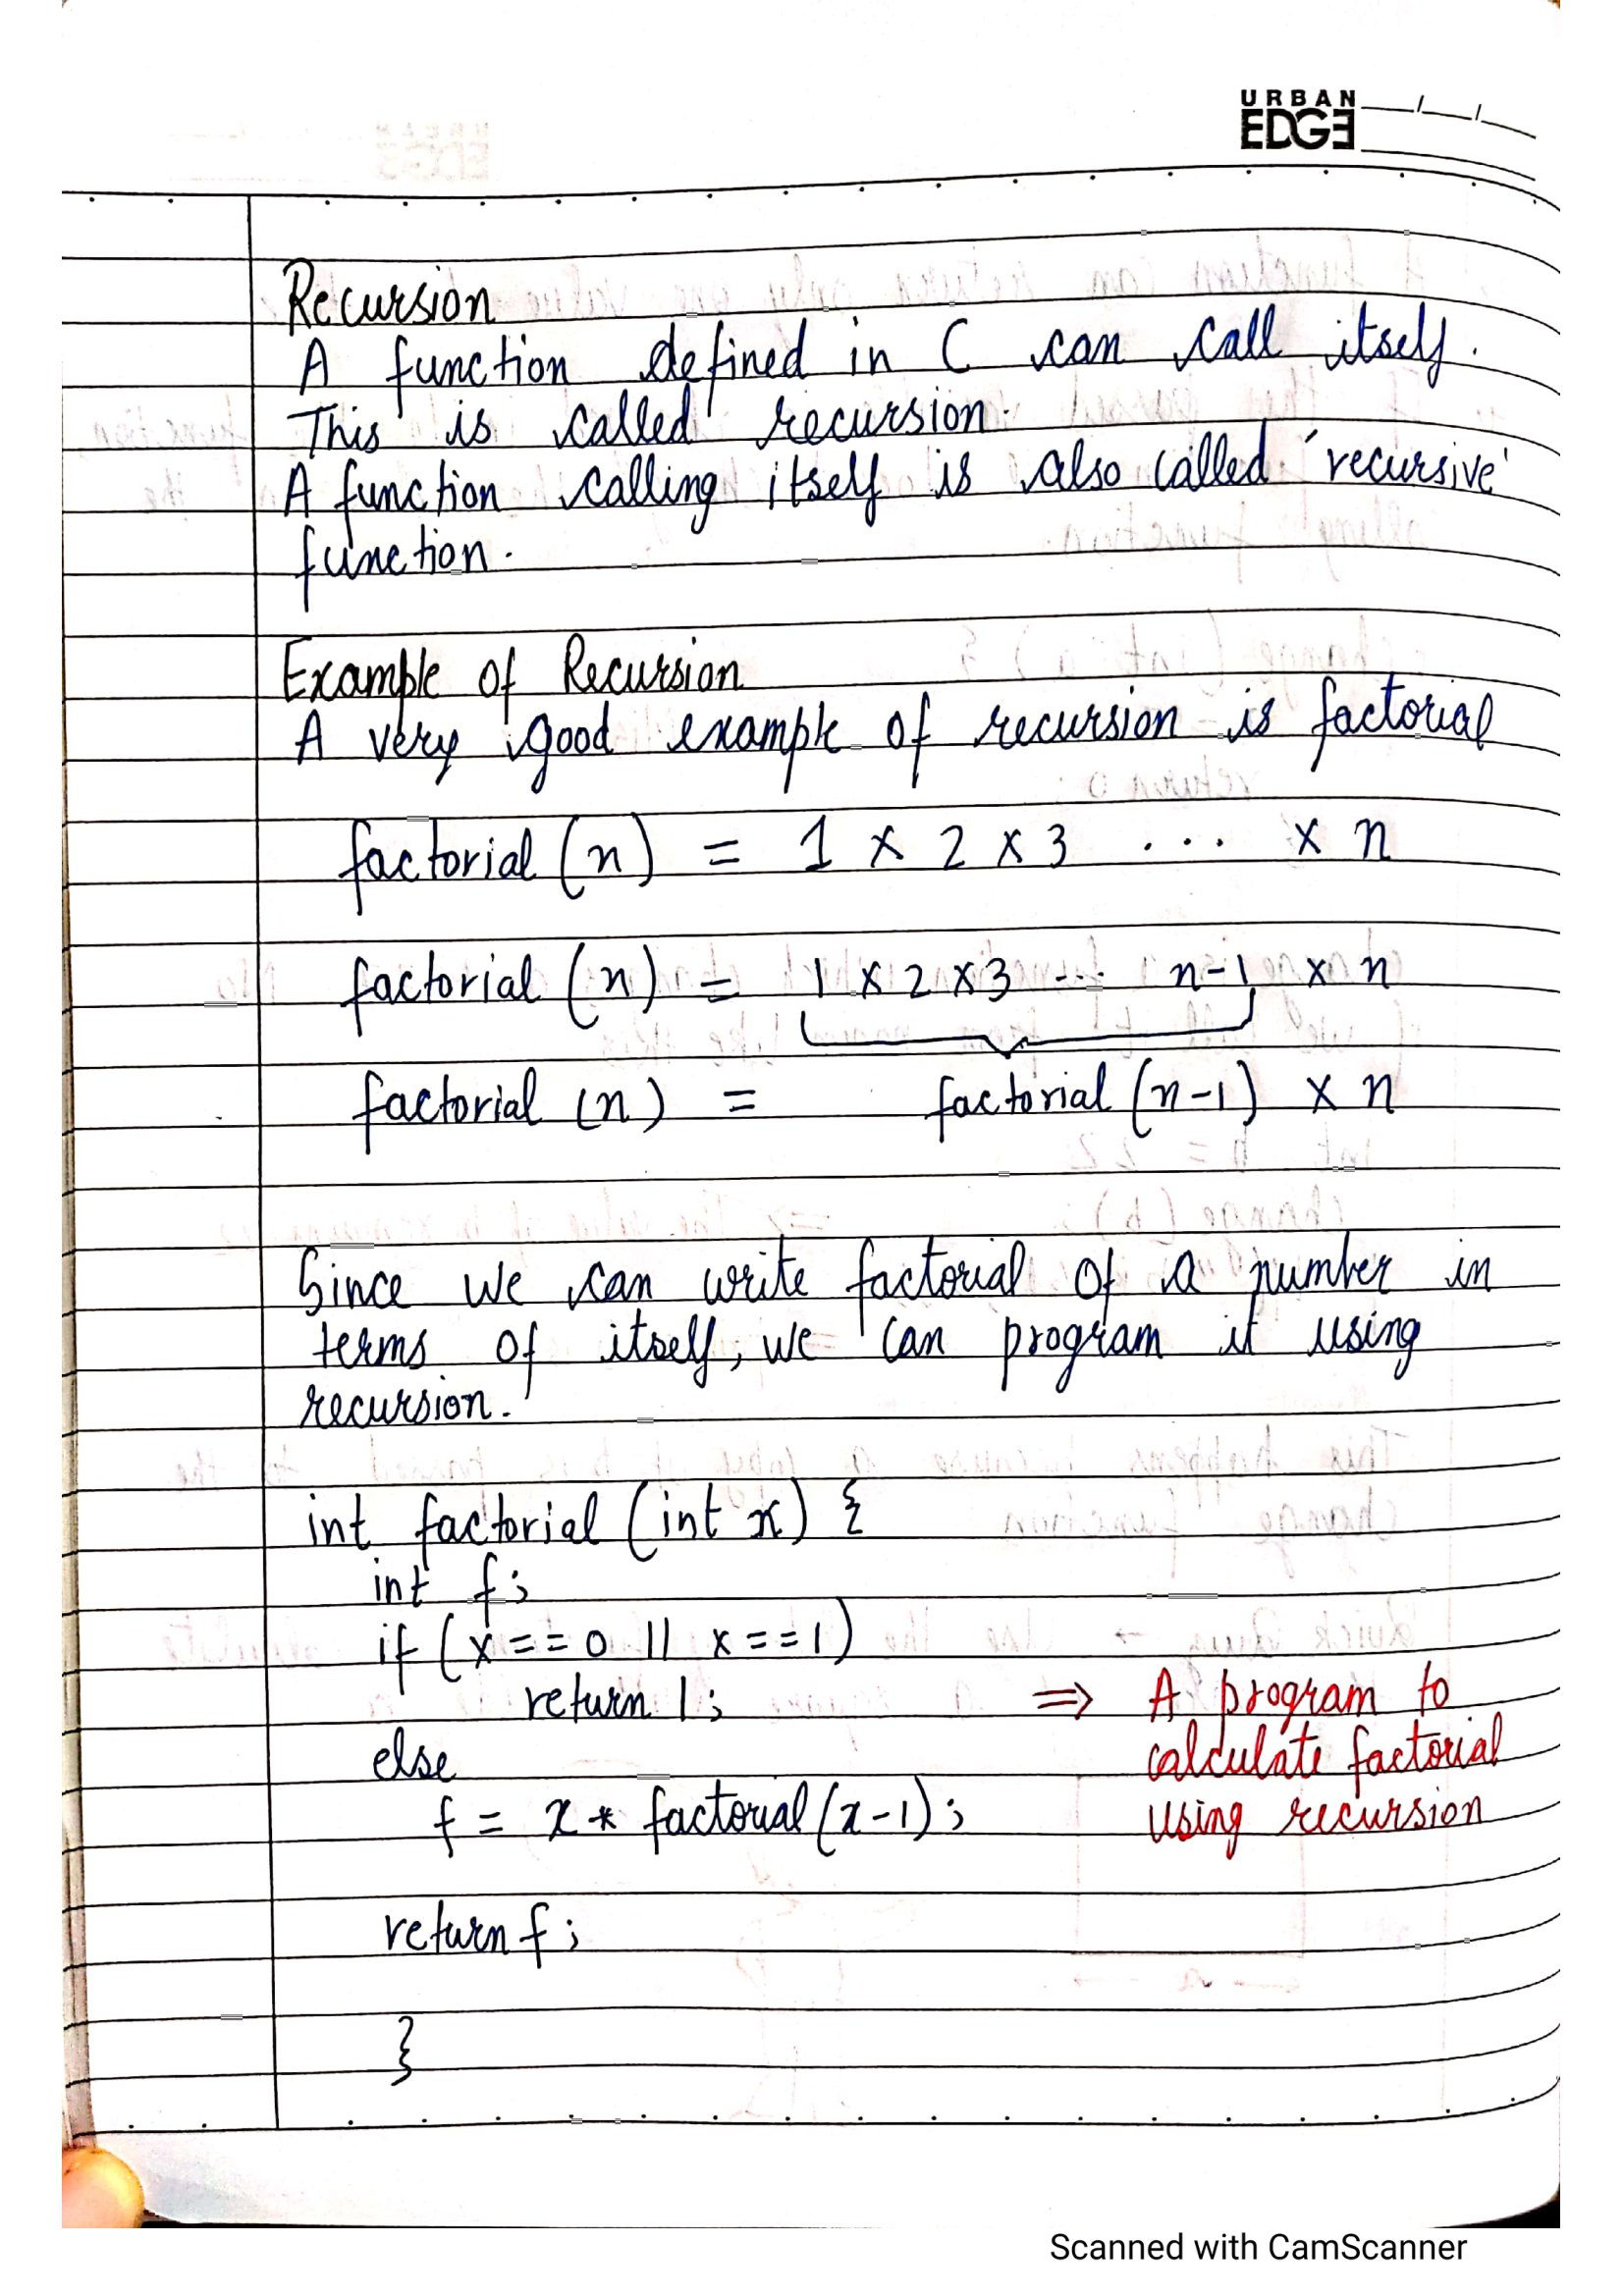 URBAN
EDGE
Recursion
A function defined in C can call itself.
This is called recursion.
A function calling itself is also called 'recursive'
function.
Example of Recursion
A very good example of recursion is factorial
factorial (n) = 1 × 2 × 3 ... × n
factorial (n) = 1 × 2 × 3 ... n-1 × n
factorial (n) = factorial (n-1) × n
Since we can write factorial of a number in
terms of itself, we can program it using
recursion.
int factorial (int x) {
int f;
if (x == 0 || x == 1)
return 1; ⇒ A program to
else calculate factorial
f = x * factorial (x-1); using recursion
return f;
}
Scanned with CamScanner